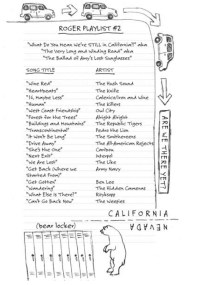 ROGER PLAYLIST #2
"What Do You Mean We're STILL in California?" aka
"The Very Long and Winding Road" aka
"The Ballad of Amy's Lost Sunglasses"
SONG TITLE ARTIST
"Wine Red" The Hush Sound
"Heartbeats" The Knife
"Is, Maybe Less"
"Human" The Killers
"West Coast Friendship" Owl City
"Forest for the Trees" Alright Alright
"Buildings and Mountains" The Republic Tigers
"Transcontinental" Pedro the Lion
"It Won't Be Long" The Smithereens
"Drive Away" The All-American Rejects
"She's the One" Caribou
"Next Exit" Interpol
"We Are Lost" The Like
"Get Back (Where we Army Navy
Started From)"
"Got Clothes" Ben Lee
"Wandering" The Hidden Cameras
"What Else Is There?" Röyksopp
"Can't Go Back Now" The Weepies
ARE WE THERE YET?
CALIFORNIA
NEVADA
(bear locker)